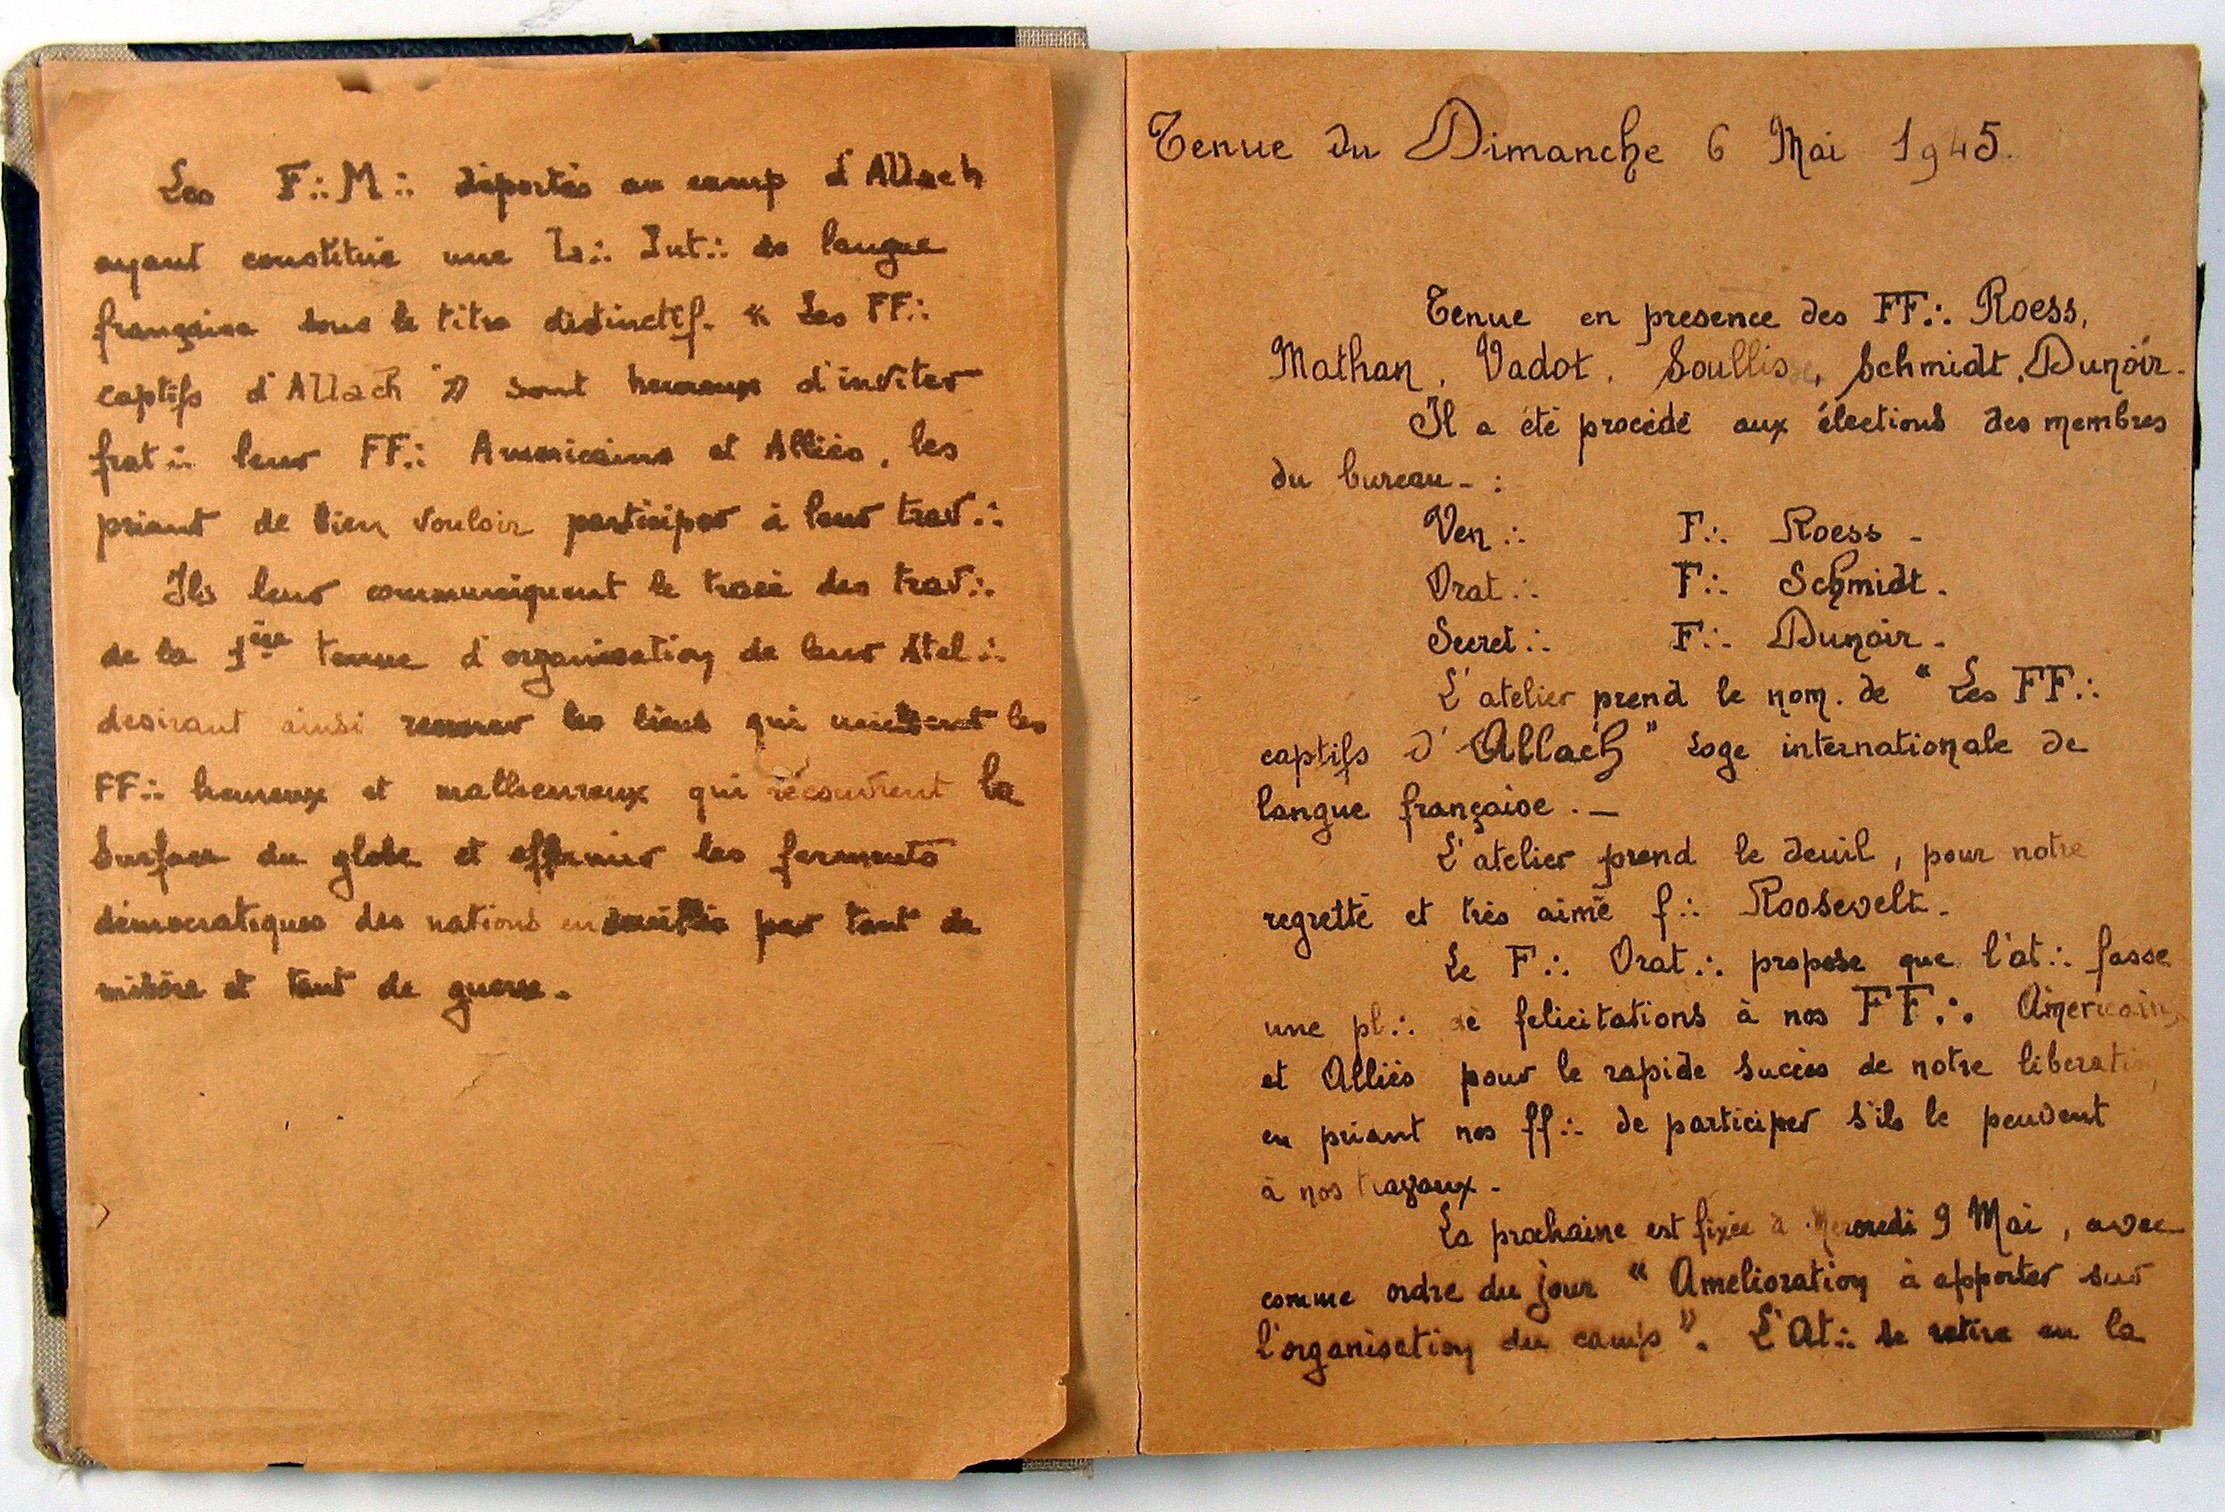 Les F∴M∴ déportés au camp d'Allach
ayant constitué une L∴ Int∴ de langue
française sous le titre distinctif. « Les FF∴
captifs d'Allach » sont heureux d'inviter
frat∴ leur FF∴ Americains et Alliés, les
priant de bien vouloir participer à leur trav∴
Ils leur communiquent le tracé des trav∴
de la 1ère tenue d'organisation de leur Atel∴
desirant ainsi renouer les liens qui les
FF∴ heureux et malheureux qui recouvrent la
surface du globe et affermir les ferments
démocratiques des nations par tant de
misère et tant de guerre.
Tenue du Dimanche 6 Mai 1945.
Tenue en presence des FF∴ Roess,
Mathan, Vadot, Schmidt, Dunoir.
Il a été procédé aux élections des membres
du bureau - :
Ven∴ F∴ Roess -
Orat∴ F∴ Schmidt.
Secret∴ F∴ Dunoir -
L'atelier prend le nom. de "Les FF∴
captifs d'Allach" Loge internationale de
langue française. —
L'atelier prend le deuil, pour notre
regretté et très aimé f∴ Roosevelt -
Le F∴ Orat∴ propose que l'at∴ fasse
une pl∴ de felicitations à nos FF∴ Américains
et Alliés pour le rapide succès de notre liberation
en priant nos ff∴ de participer s'ils le peuvent
à nos travaux -
La prochaine est fixée à Mercredi 9 Mai, avec
comme ordre du jour "Amelioration à apporter sur
l'organisation du camp". L'At∴ se retire en la